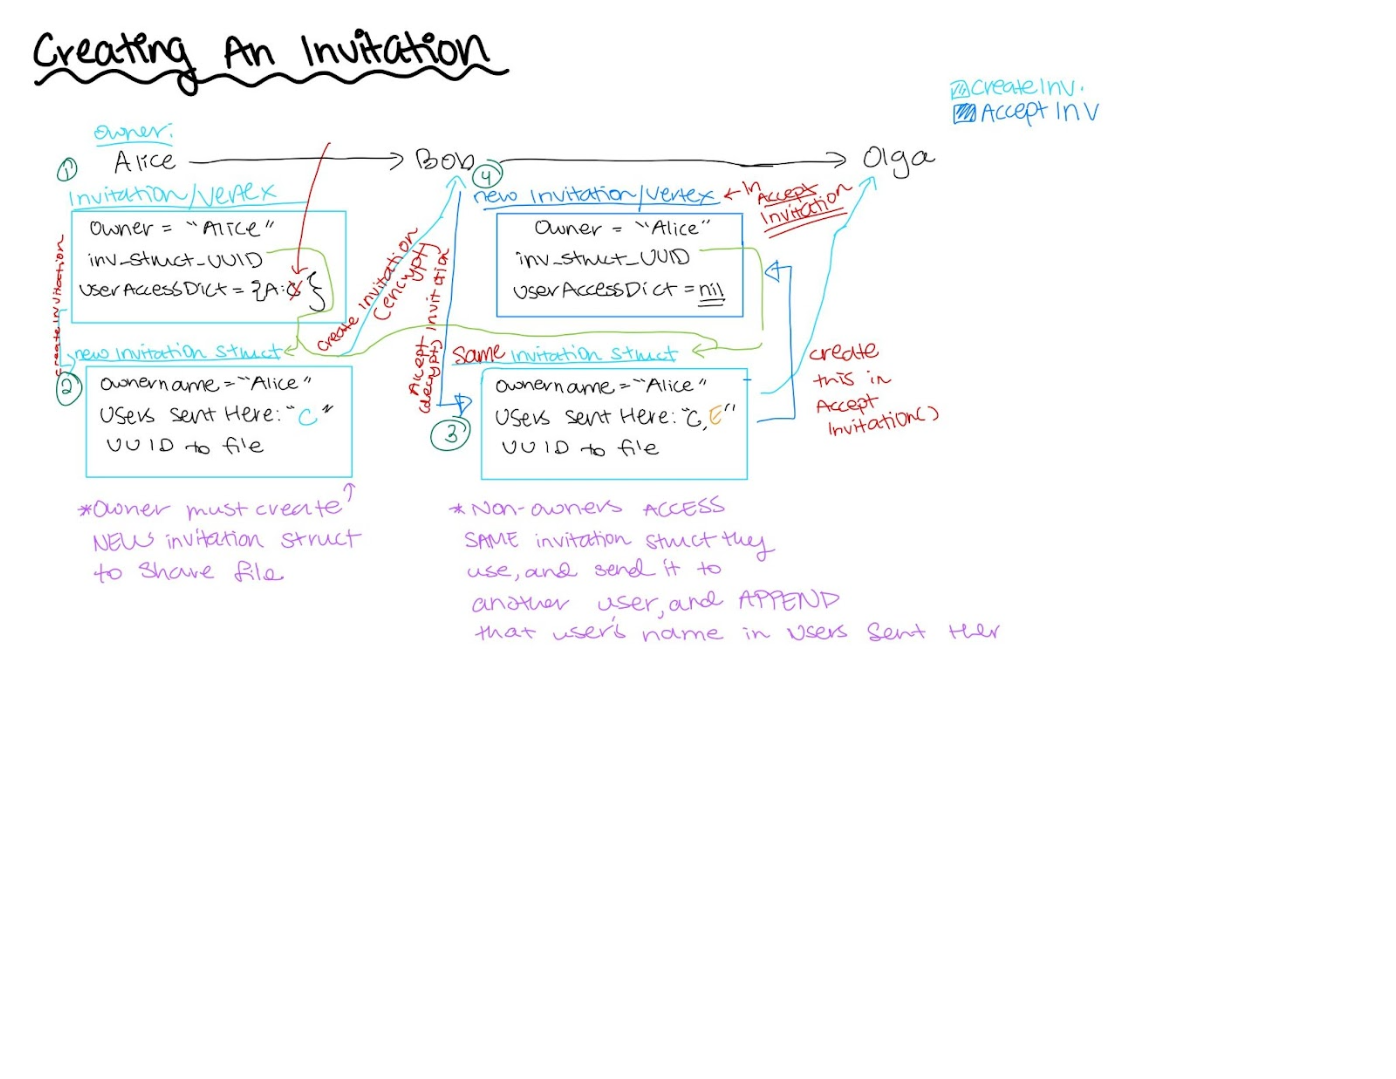 Creating An Invitation
CreateInv.
Accept Inv
Owner:
① Alice
Bob
Olga
Invitation/Vertex
Owner = "Alice"
inv_struct_UUID
userAccessDict = {A: }
create invitation
new invitation struct
②
Ownername = "Alice"
Users sent Here: "C"
UUID to file
*Owner must create
NEW invitation struct
to share file
create invitation
(encrypt)
Accept invitation
(decrypt)
④
new Invitation/Vertex
← In
Accept
Invitation
Owner = "Alice"
inv_struct_UUID
userAccessDict = nil
Same invitation struct
③
Ownername = "Alice"
Users sent Here: "C, E"
UUID to file
create
this in
Accept
Invitation()
* Non-owners ACCESS
SAME invitation struct they
use, and send it to
another user, and APPEND
that user's name in Users Sent Her